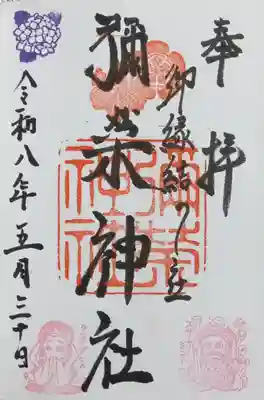 奉拝
御縁結の社
彌栄神社
令和八年五月三十日